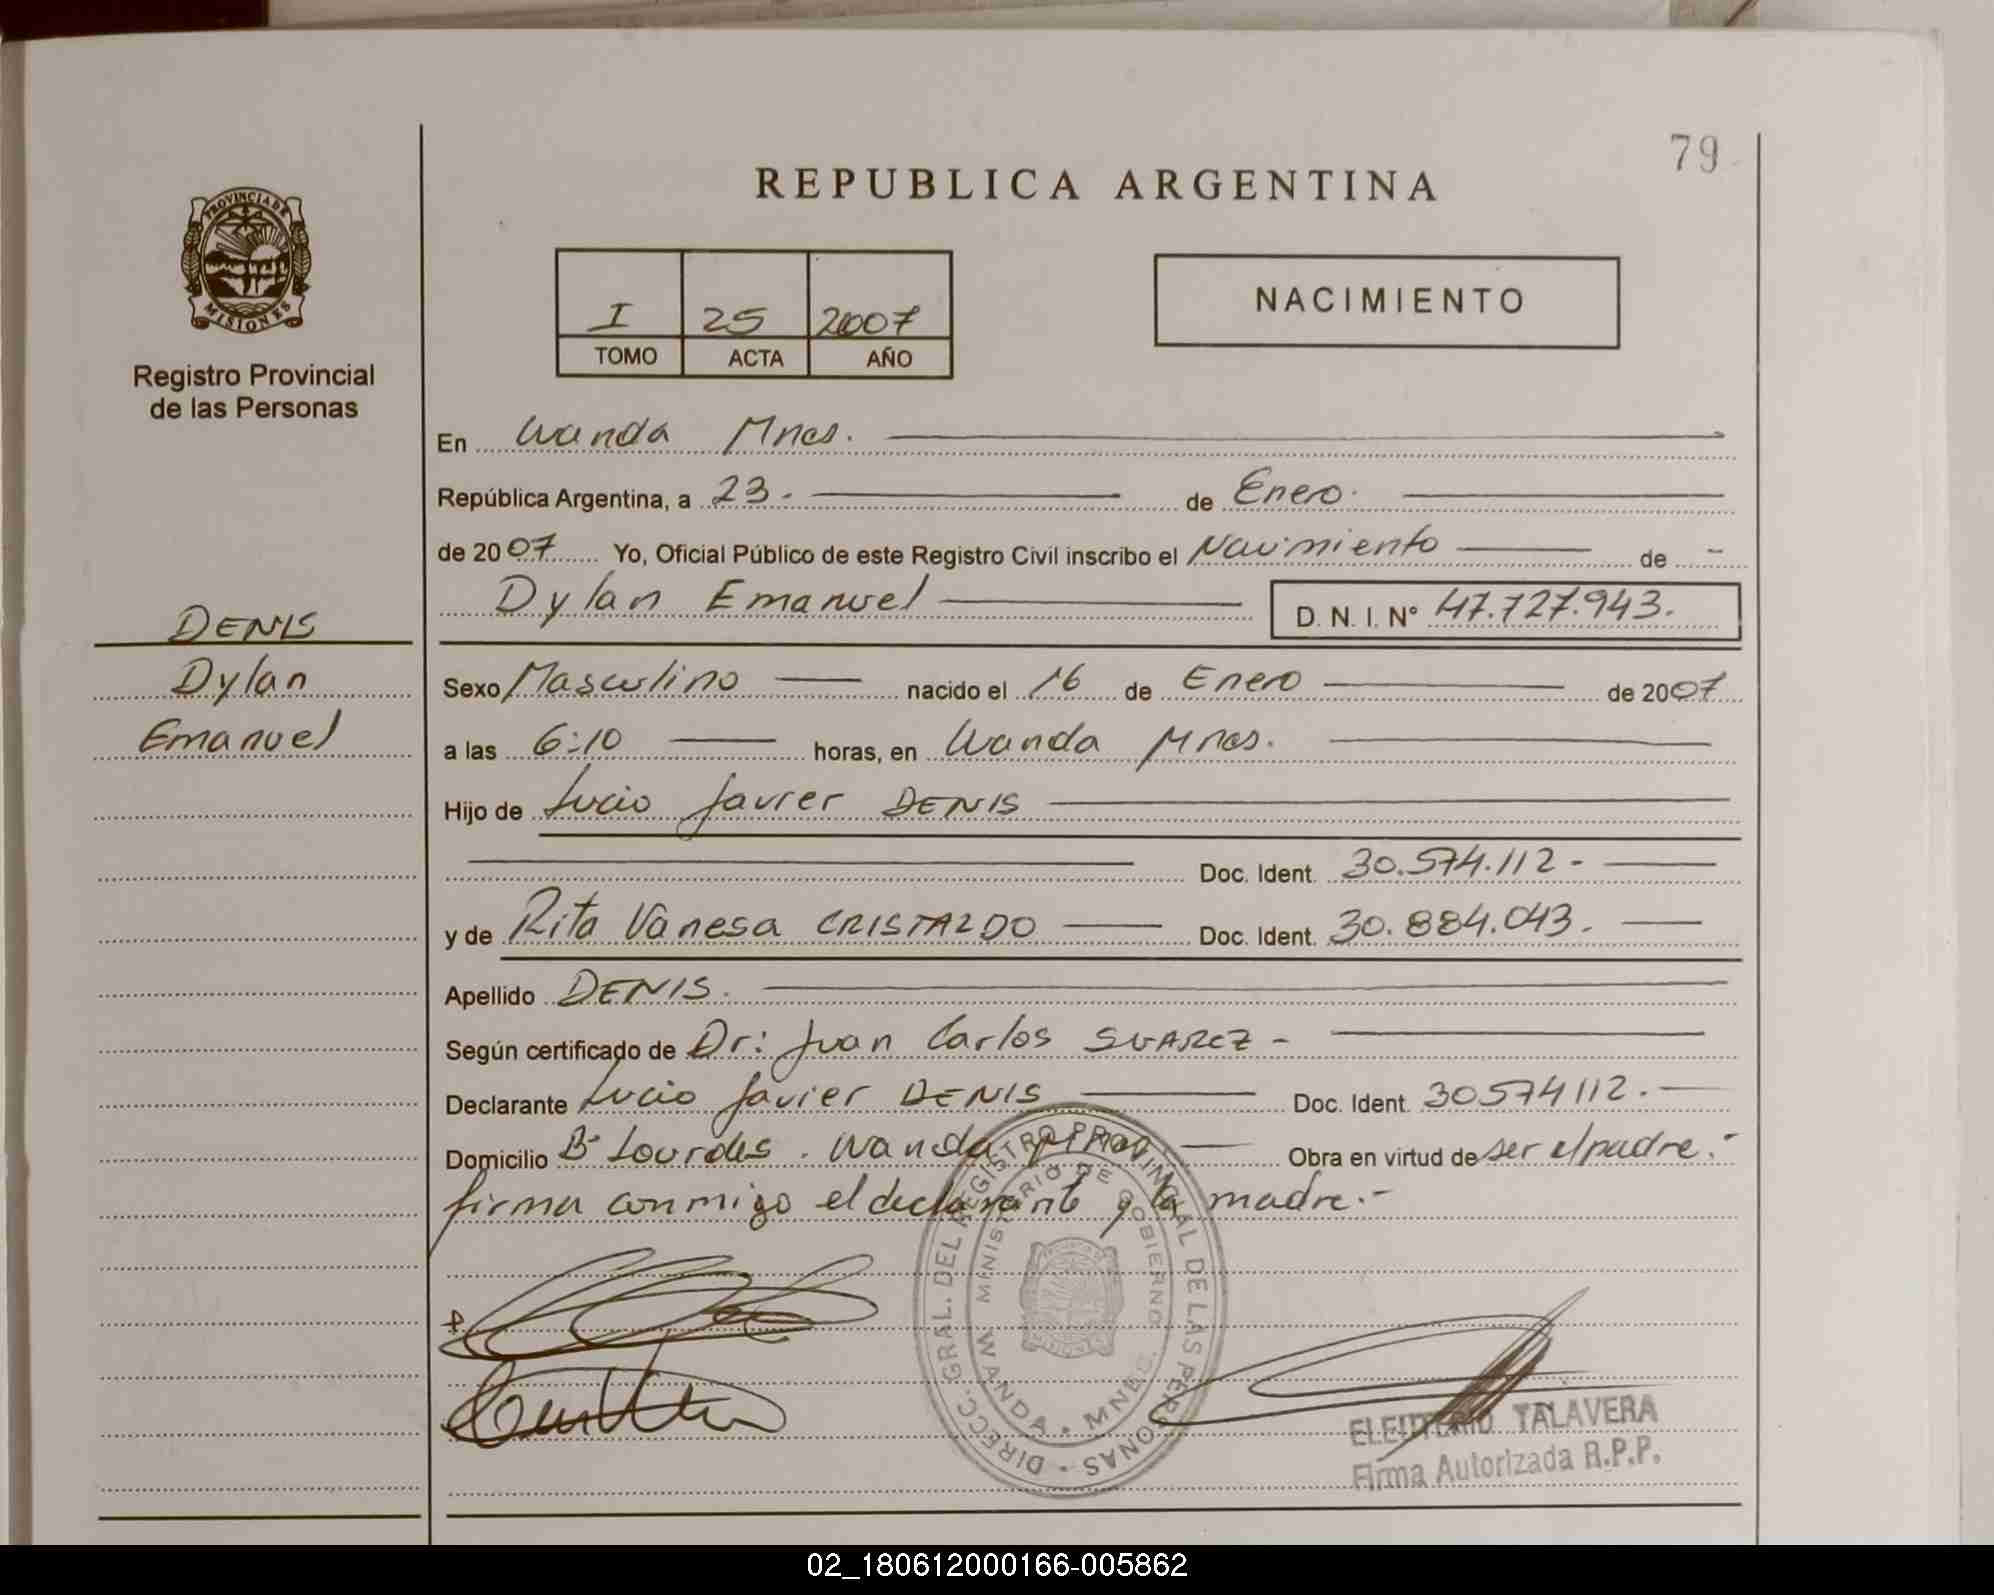 79
REPUBLICA ARGENTINA
PROVINCIA DE MISIONES
Registro Provincial
de las Personas
I 25 2007
TOMO ACTA AÑO
NACIMIENTO
En Wanda Mnes.
República Argentina, a 23. de Enero.
de 2007 Yo, Oficial Público de este Registro Civil inscribo el Nacimiento de -
Dylan Emanuel D. N. I. N° 47.727.943.
DENIS
Dylan
Emanuel
Sexo Masculino nacido el 16 de Enero de 2007
a las 6:10 horas, en Wanda Mnes.
Hijo de Lucio Javier DENIS
Doc. Ident. 30.574.112-
y de Rita Vanesa CRISTALDO Doc. Ident. 30.884.043.
Apellido DENIS.
Según certificado de Dr: Juan Carlos SUAREZ -
Declarante Lucio Javier DENIS Doc. Ident. 30574112.
Domicilio B° Lourdes. Wanda Mnes Obra en virtud de ser el padre.-
firma conmigo el declarante y la madre.-
DIRECC. GRAL. DEL REGISTRO PROVINCIAL DE LAS PERSONAS
MINISTERIO DE GOBIERNO
WANDA • MNES.
ELEUTERIO TALAVERA
Firma Autorizada R.P.P.
02_180612000166-005862